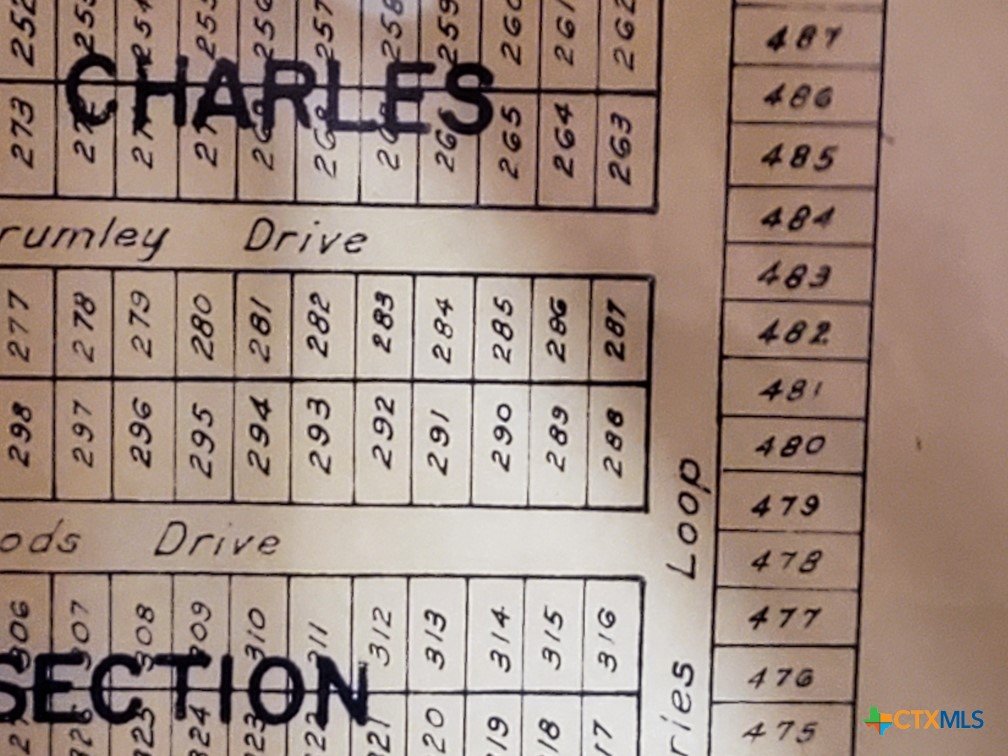 252 253 254 255 256 257 258 259 260 261 262
CHARLES
273 265 264 263
Drive
277 278 279 280 281 282 283 284 285 286 287
298 297 296 295 294 293 292 291 290 289 288
Drive
306 307 308 309 310 311 312 313 314 315 316
SECTION
Loop
487
486
485
484
483
482
481
480
479
478
477
476
475
CTXMLS